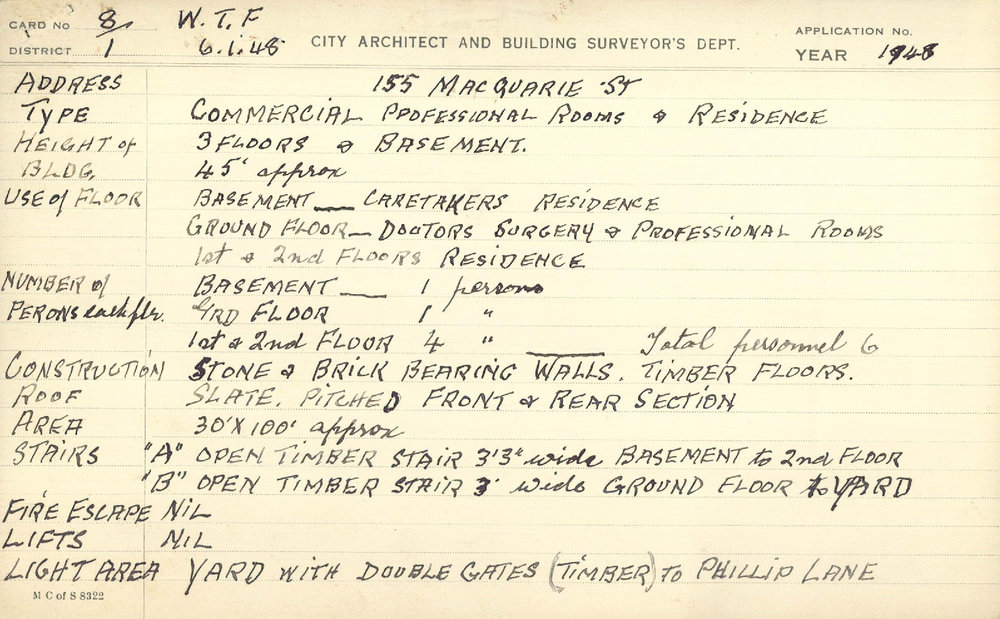 CARD No 8 W.T.F APPLICATION No.
DISTRICT 1 6.1.48 CITY ARCHITECT AND BUILDING SURVEYOR'S DEPT. YEAR 1948
ADDRESS 155 MACQUARIE ST
TYPE COMMERCIAL PROFESSIONAL ROOMS & RESIDENCE
HEIGHT of 3 FLOORS & BASEMENT.
BLDG. 45' approx
USE of FLOOR BASEMENT — CARETAKERS RESIDENCE
GROUND FLOOR — DOCTORS SURGERY & PROFESSIONAL ROOMS
1st & 2nd FLOORS RESIDENCE
NUMBER of BASEMENT — 1 persons
PERONS each flr. GRD FLOOR 1 "
1st & 2nd FLOOR 4 " — Total personnel 6
CONSTRUCTION STONE & BRICK BEARING WALLS. TIMBER FLOORS.
ROOF SLATE. PITCHED FRONT & REAR SECTION
AREA 30' X 100' approx
STAIRS "A" OPEN TIMBER STAIR 3'3" wide BASEMENT to 2nd FLOOR
"B" OPEN TIMBER STAIR 3' wide GROUND FLOOR to YARD
FIRE ESCAPE NIL
LIFTS NIL
LIGHT AREA YARD WITH DOUBLE GATES (TIMBER) TO PHILLIP LANE
M C of S 8322